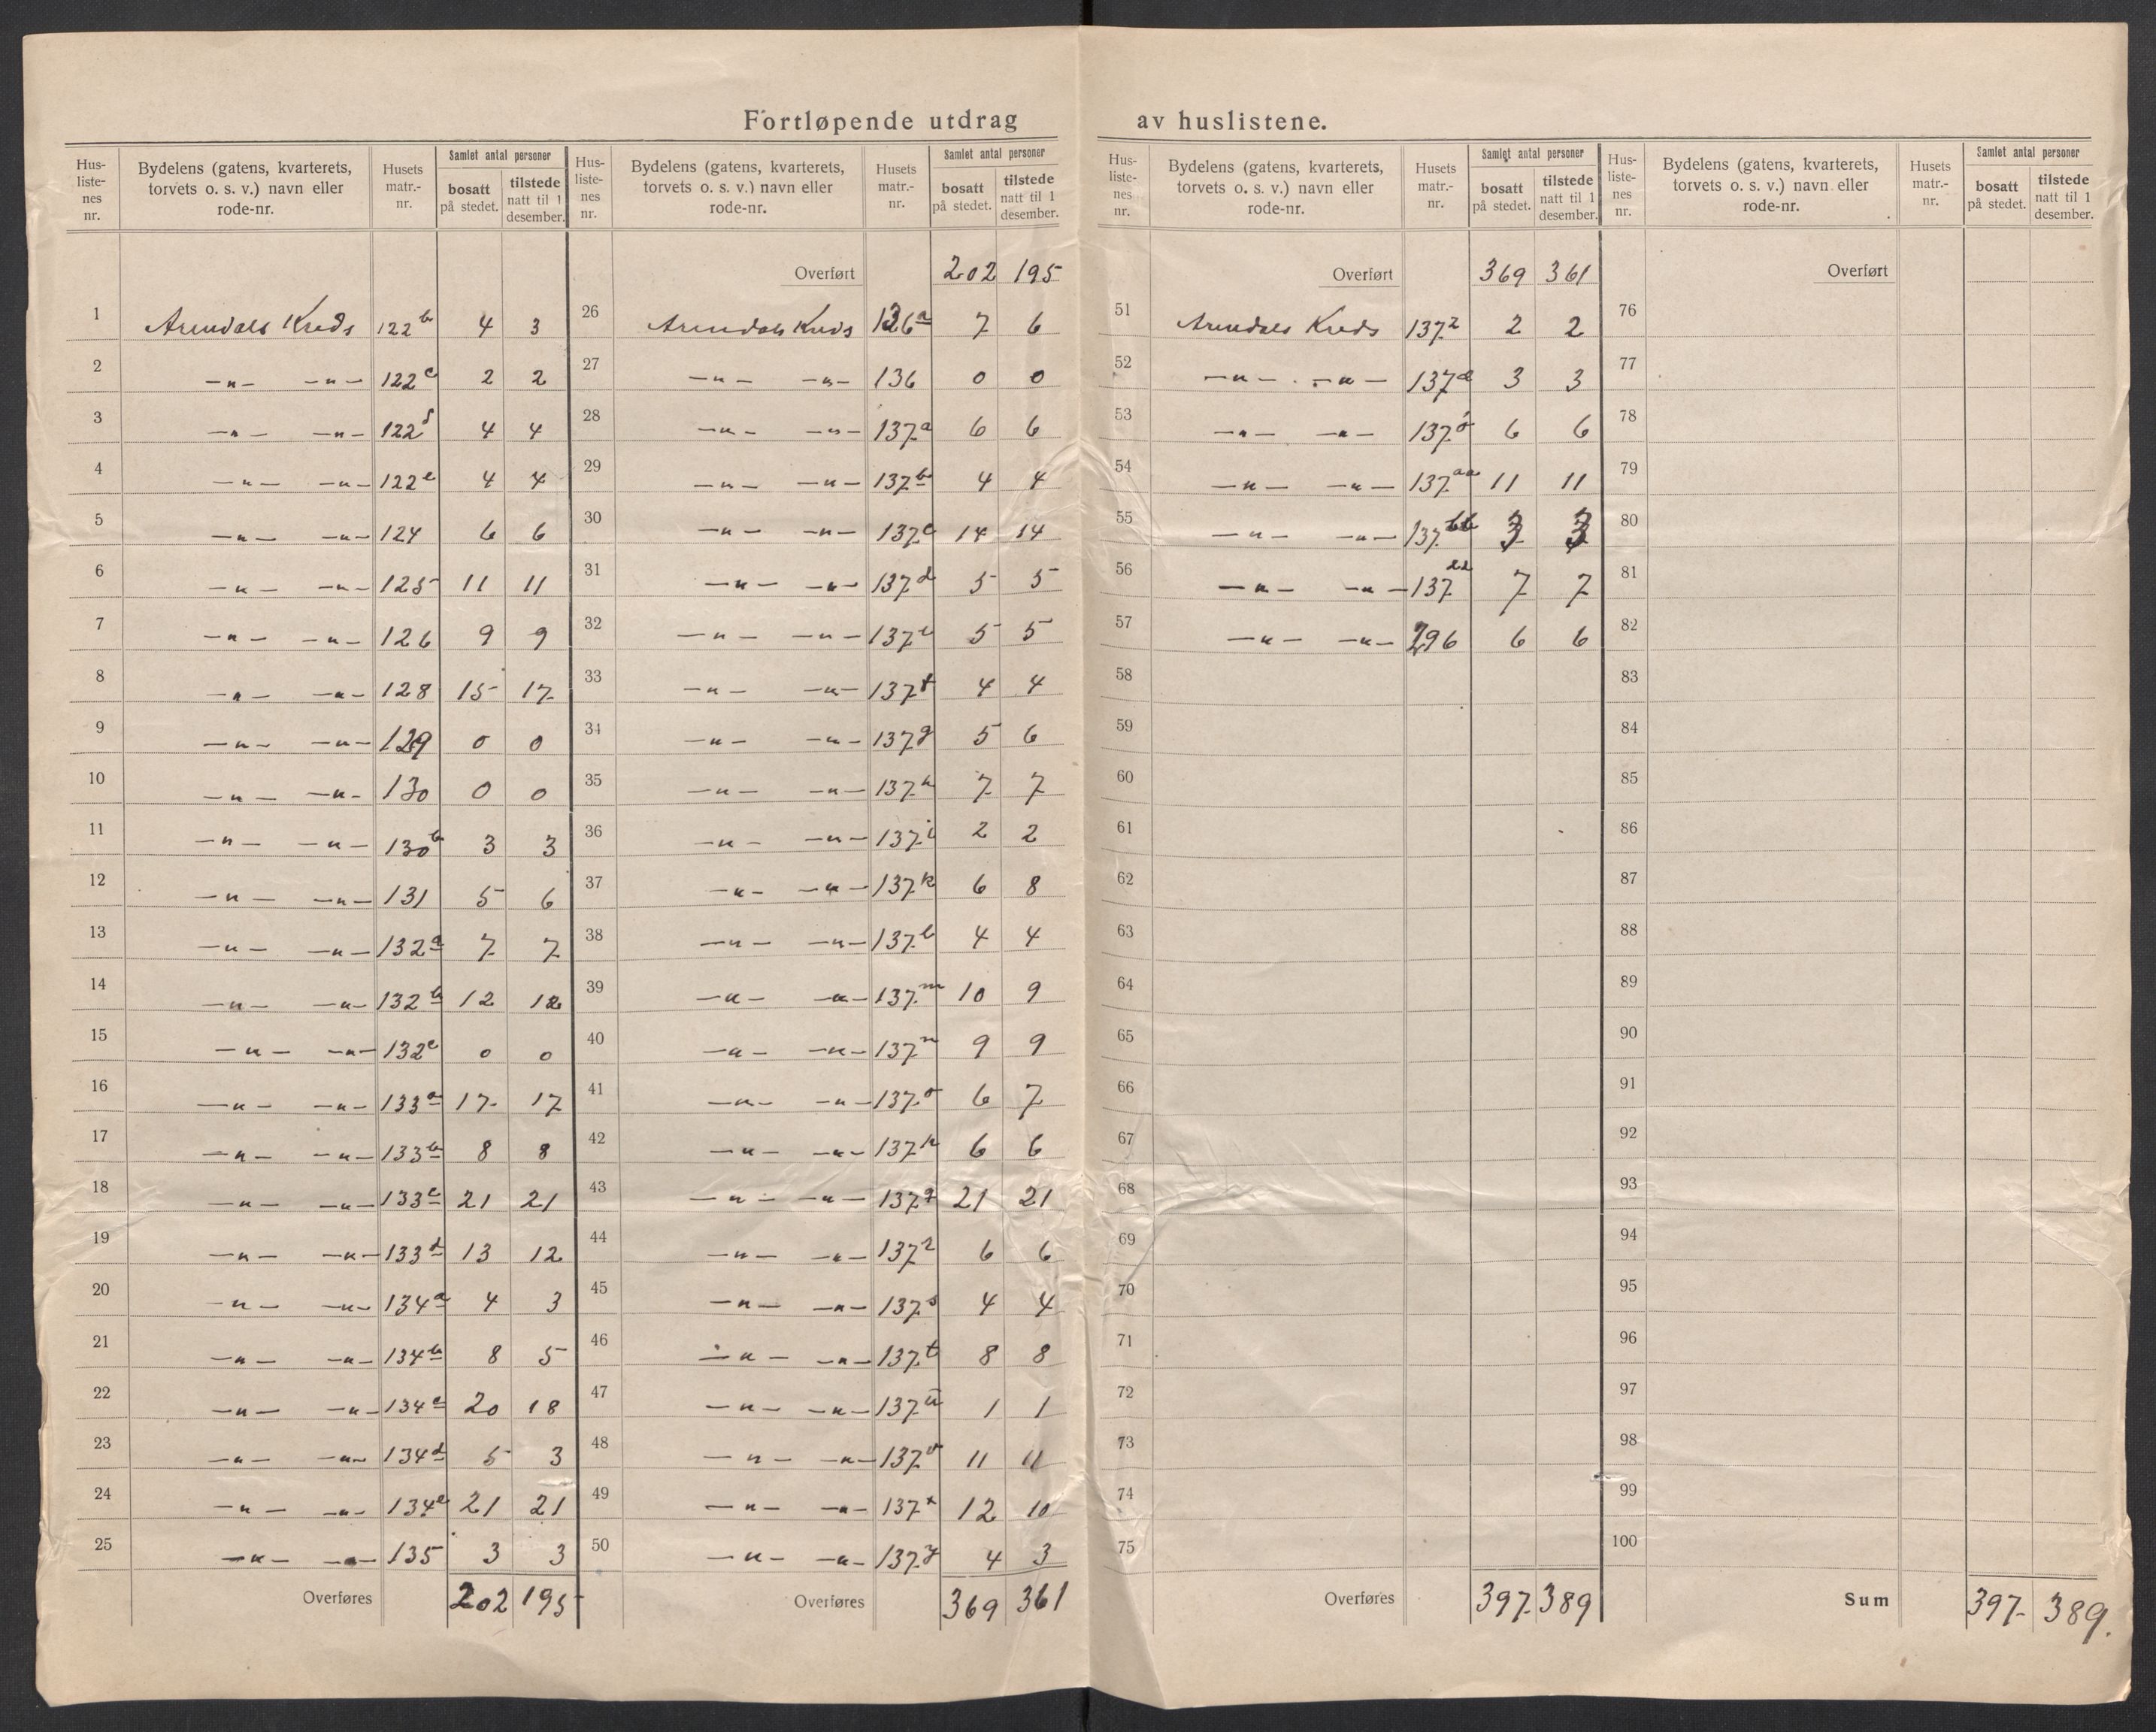 Fortløpende utdrag av huslistene.
Hus-liste-nes nr. Bydelens (gatens, kvarterets, torvets o. s. v.) navn eller rode-nr. Husets matr.-nr. Samlet antal personer bosatt på stedet. tilstede natt til 1 desember.
1 Arendals Kreds 122b 4 3
2 —"— —"— 122c 2 2
3 —"— —"— 122d 4 4
4 —"— —"— 122e 4 4
5 —"— —"— 124 6 6
6 —"— —"— 125 11 11
7 —"— —"— 126 9 9
8 —"— —"— 128 15 17
9 —"— —"— 129 0 0
10 —"— —"— 130 0 0
11 —"— —"— 130b 3 3
12 —"— —"— 131 5 6
13 —"— —"— 132a 7 7
14 —"— —"— 132b 12 12
15 —"— —"— 132c 0 0
16 —"— —"— 133a 17 17
17 —"— —"— 133b 8 8
18 —"— —"— 133c 21 21
19 —"— —"— 133d 13 12
20 —"— —"— 134a 4 3
21 —"— —"— 134b 8 5
22 —"— —"— 134c 20 18
23 —"— —"— 134d 5 3
24 —"— —"— 134e 21 21
25 —"— —"— 135 3 3
Overføres 202 195
Hus-liste-nes nr. Bydelens (gatens, kvarterets, torvets o. s. v.) navn eller rode-nr. Husets matr.-nr. Samlet antal personer bosatt på stedet. tilstede natt til 1 desember.
Overført 202 195
26 Arendals Kreds 136a 7 6
27 —"— —"— 136 0 0
28 —"— —"— 137a 6 6
29 —"— —"— 137b 4 4
30 —"— —"— 137c 14 14
31 —"— —"— 137d 5 5
32 —"— —"— 137e 5 5
33 —"— —"— 137f 4 4
34 —"— —"— 137g 5 6
35 —"— —"— 137h 7 7
36 —"— —"— 137i 2 2
37 —"— —"— 137k 6 8
38 —"— —"— 137l 4 4
39 —"— —"— 137m 10 9
40 —"— —"— 137n 9 9
41 —"— —"— 137o 6 7
42 —"— —"— 137p 6 6
43 —"— —"— 137q 21 21
44 —"— —"— 137r 6 6
45 —"— —"— 137s 4 4
46 —"— —"— 137t 8 8
47 —"— —"— 137u 1 1
48 —"— —"— 137v 11 11
49 —"— —"— 137x 12 10
50 —"— —"— 137y 4 3
Overføres 369 361
Hus-liste-nes nr. Bydelens (gatens, kvarterets, torvets o. s. v.) navn eller rode-nr. Husets matr.-nr. Samlet antal personer bosatt på stedet. tilstede natt til 1 desember.
Overført 369 361
51 Arendals Kreds 137z 2 2
52 —"— —"— 137æ 3 3
53 —"— —"— 137ø 6 6
54 —"— —"— 137aa 11 11
55 —"— —"— 137bb 3 3
56 —"— —"— 137 7 7
57 —"— —"— 296 6 6
58
59
60
61
62
63
64
65
66
67
68
69
70
71
72
73
74
75
Overføres 397 389
Hus-liste-nes nr. Bydelens (gatens, kvarterets, torvets o. s. v.) navn eller rode-nr. Husets matr.-nr. Samlet antal personer bosatt på stedet. tilstede natt til 1 desember.
Overført
76
77
78
79
80
81
82
83
84
85
86
87
88
89
90
91
92
93
94
95
96
97
98
99
100
Sum 397 389.